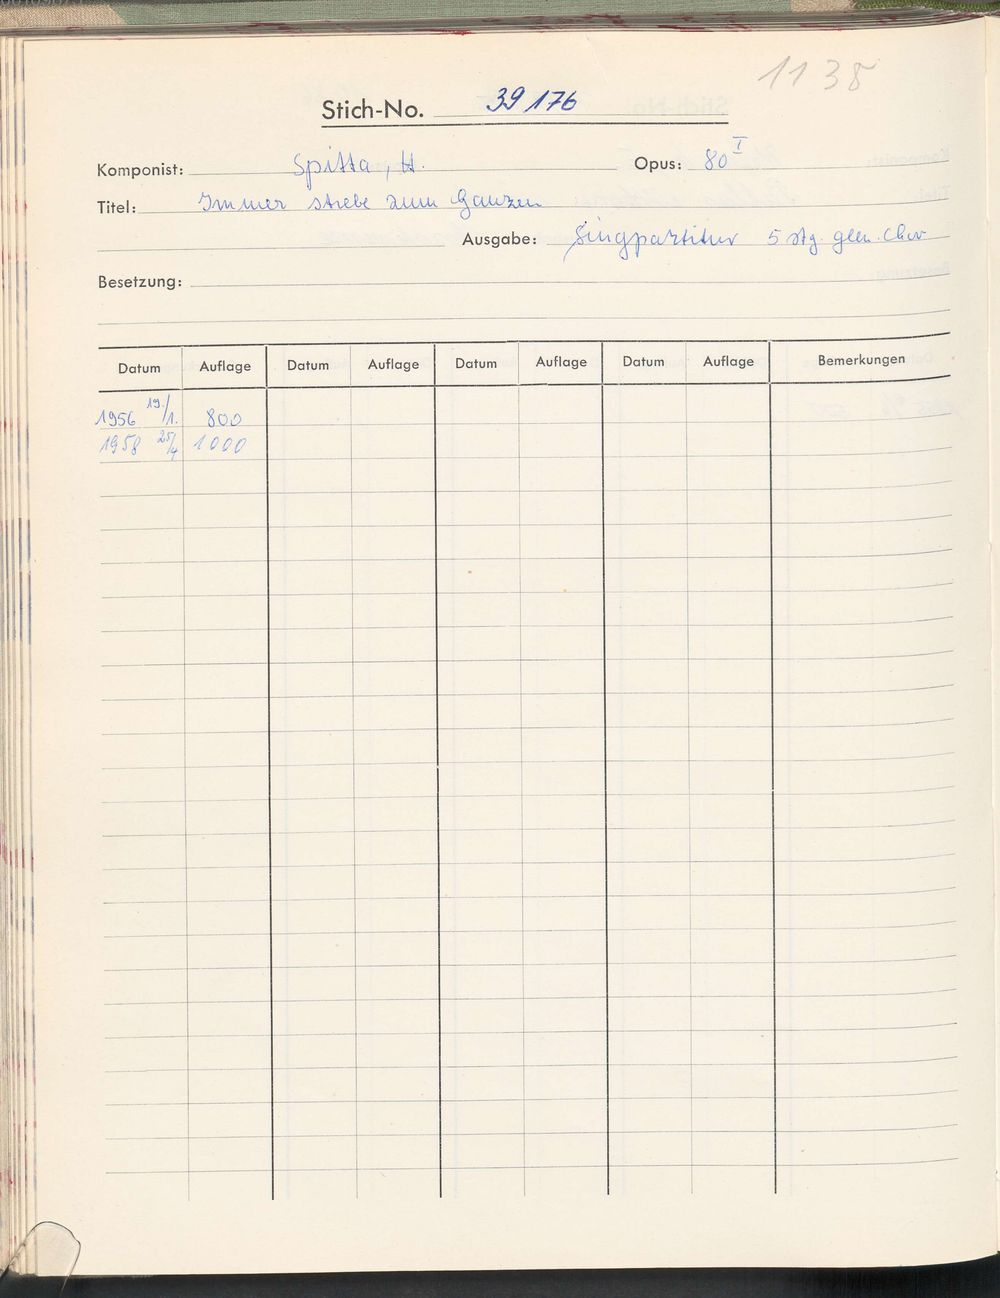 1138
Stich-No. 39176
Komponist: Spitta, H. Opus: 80 I
Titel: Immer strebe zum Ganzen
Ausgabe: Singpartitur 5 stg. gem. Chor
Besetzung:
Datum Auflage Datum Auflage Datum Auflage Datum Auflage Bemerkungen
1956 19./1. 800
1958 25/4 1000